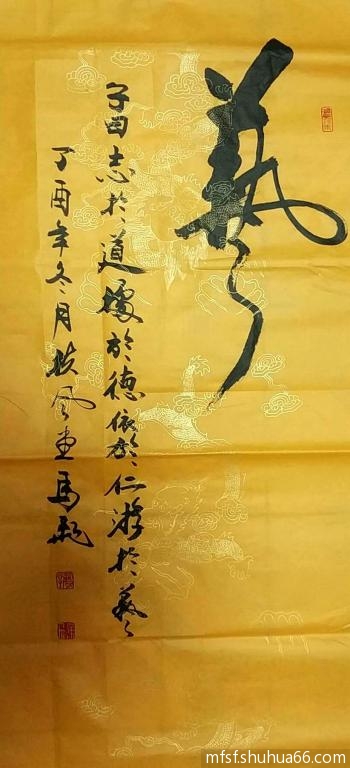 藝
子曰志於道據於德依於仁游於藝
丁酉年冬月扶风堂馬
mfsfshuhua66.com